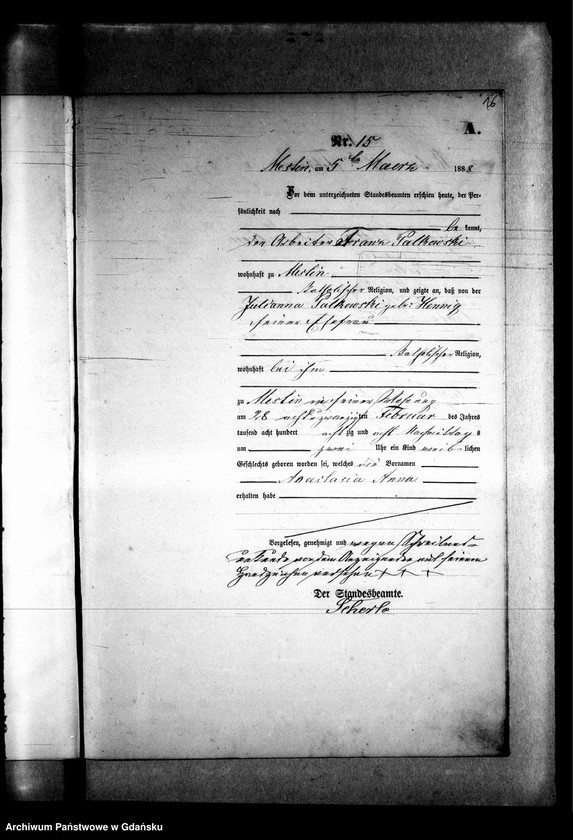 16
A.
Nr. 15
Meslin, am 5 ten Maerz 1888
Vor dem unterzeichneten Standesbeamten erschien heute, der Per-
sönlichkeit nach
be kannt,
der Arbeiter Franz Palkowski
wohnhaft zu Meslin
katholischer Religion, und zeigte an, daß von der
Julianna Palkowski geb. Hennig
seiner Ehefrau
katholischer Religion,
wohnhaft bei ihm
zu Meslin in seiner Wohnung
am 28 achtundzwanzigsten Februar des Jahres
tausend acht hundert achtzig und acht Nachmittags
um zwei Uhr ein Kind weib lichen
Geschlechts geboren worden sei, welches die Vornamen
Anastasia Anna
erhalten habe
Vorgelesen, genehmigt und wegen Schreibens-
unkunde von dem Anzeigenden mit seinem
Handzeichen versehen + + +
Der Standesbeamte.
Scherle
Archiwum Państwowe w Gdańsku